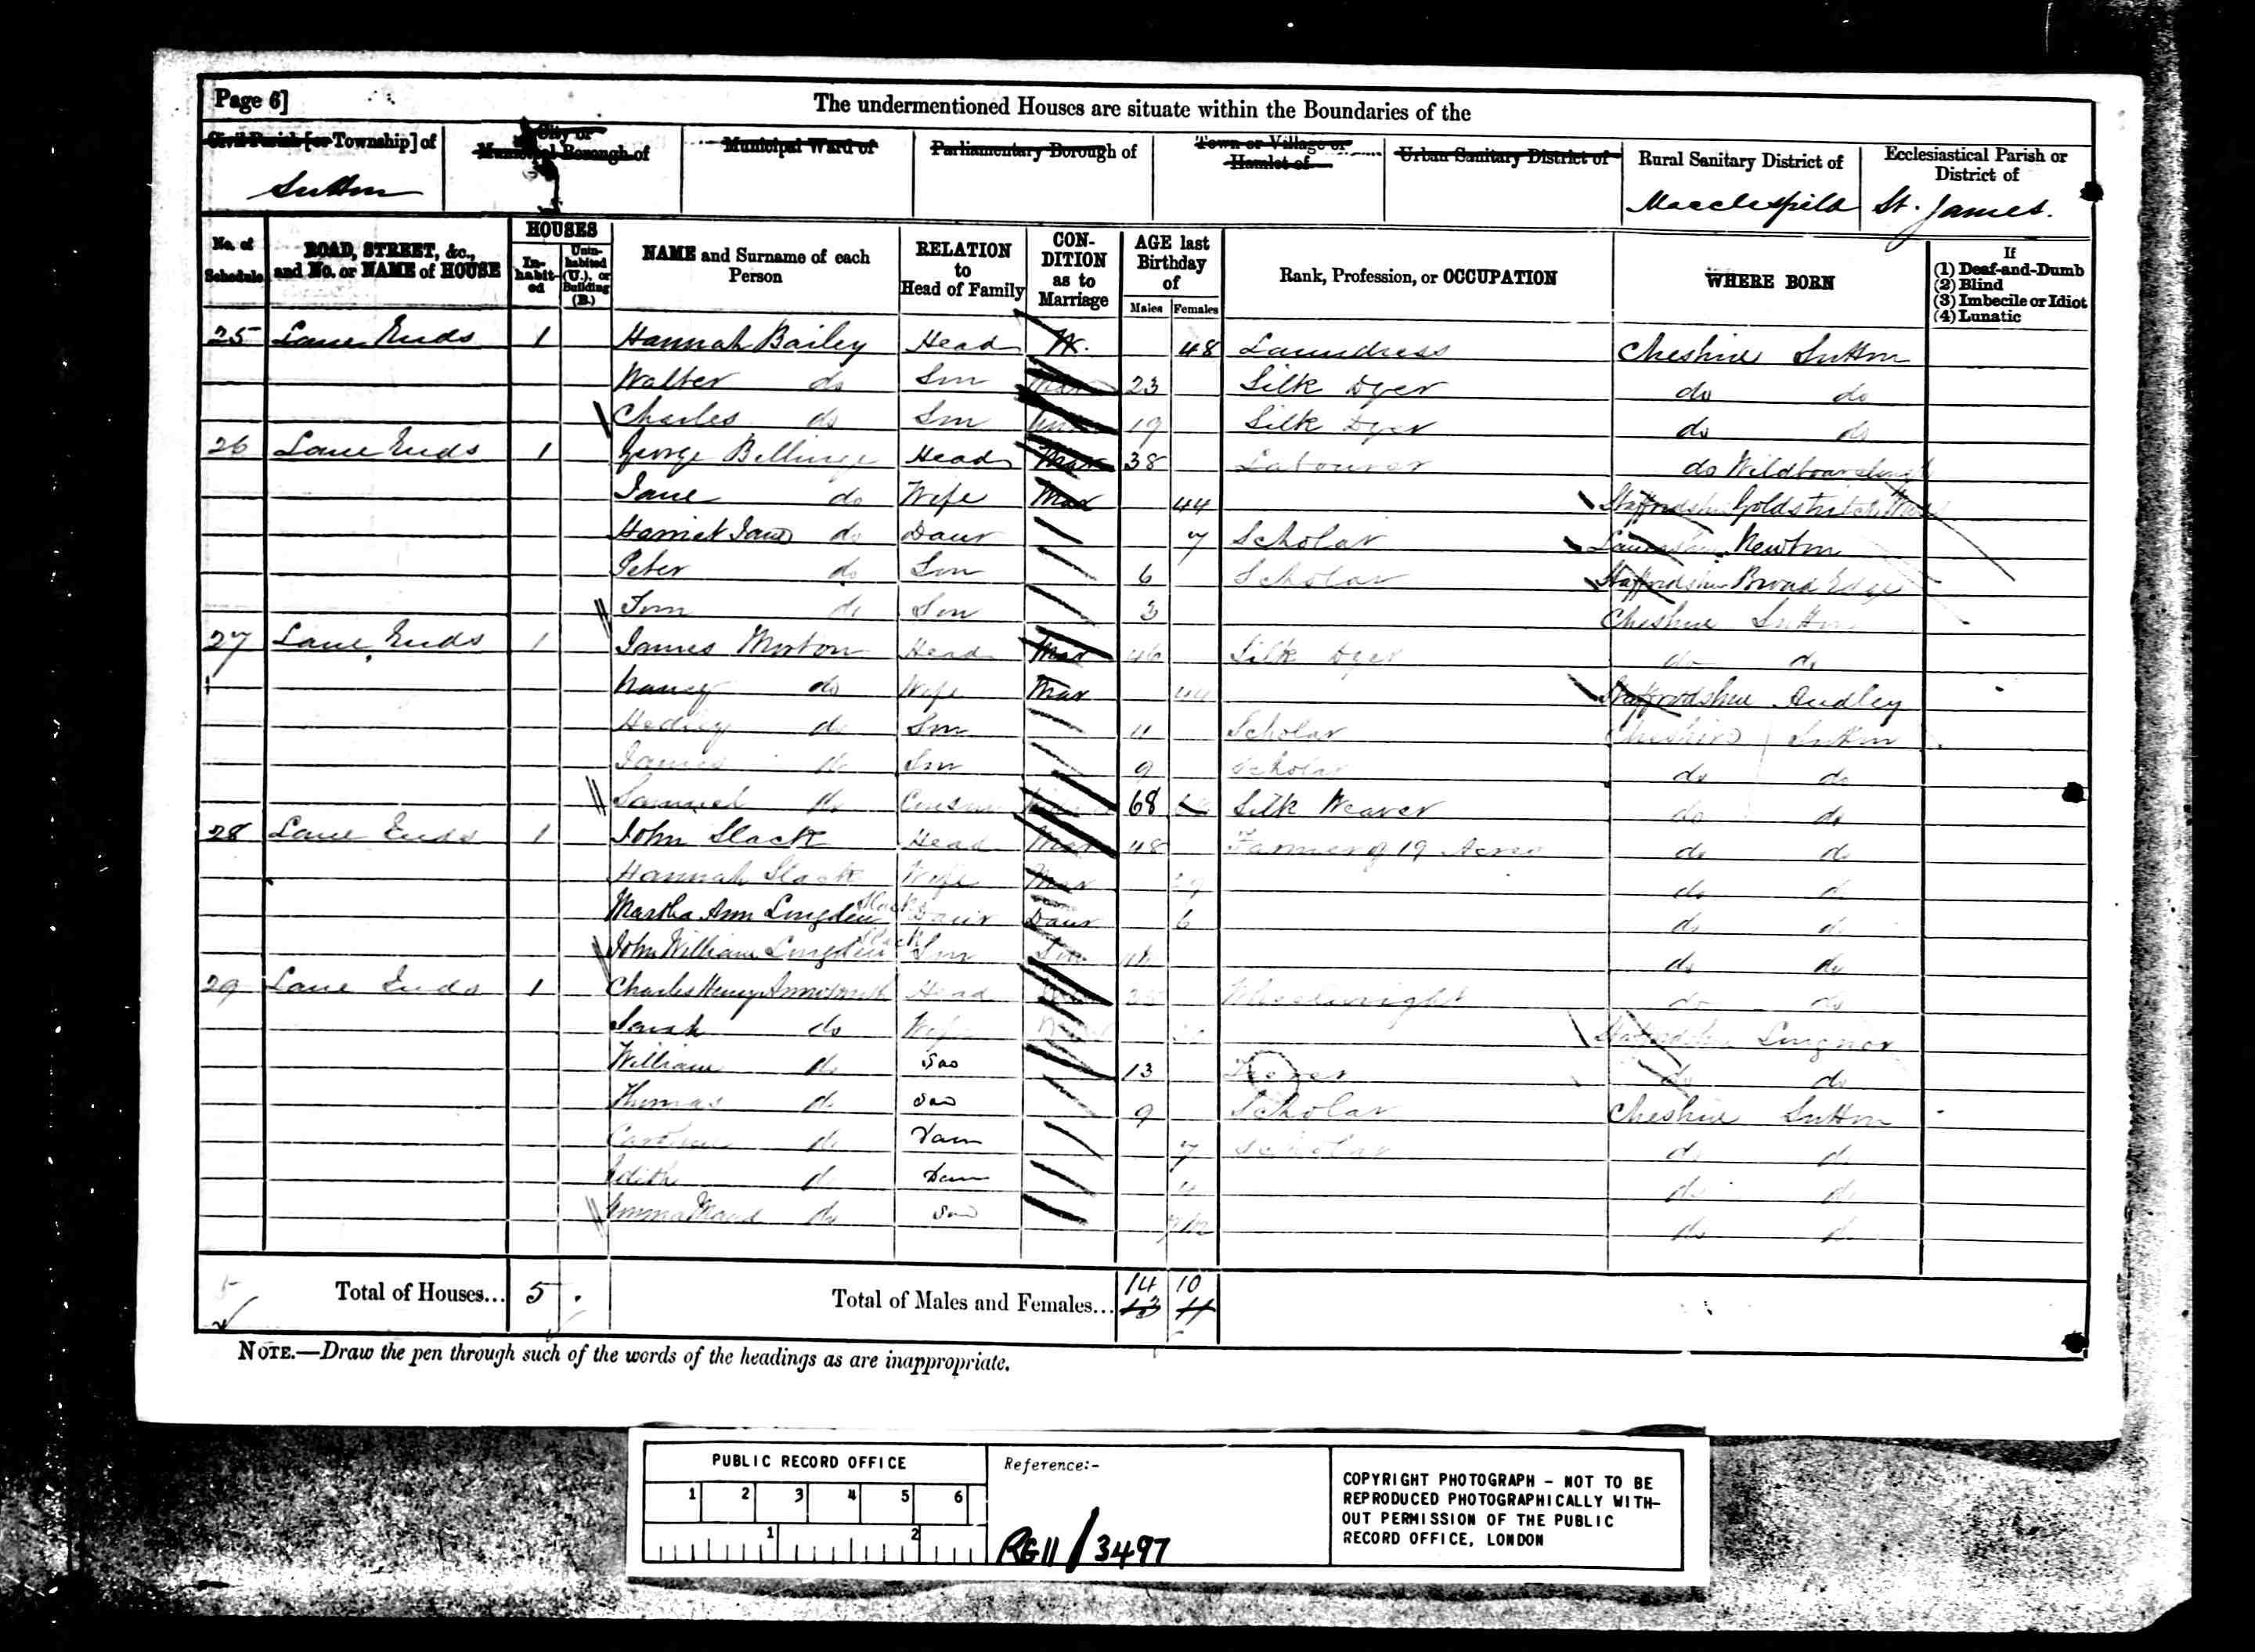 Page 6]
The undermentioned Houses are situate within the Boundaries of the
Civil Parish [or Township] of
City or Municipal Borough of
Municipal Ward of
Parliamentary Borough of
Town or Village or Hamlet of
Urban Sanitary District of
Rural Sanitary District of
Ecclesiastical Parish or District of
Sutton Macclesfield St. James.
No. of Schedule
ROAD, STREET, &c., and No. or NAME of HOUSE
HOUSES
In-habit-ed
Unin-habited (U.), or Building (B.)
NAME and Surname of each Person
RELATION to Head of Family
CON-DITION as to Marriage
AGE last Birthday of
Males Females
Rank, Profession, or OCCUPATION
WHERE BORN
If
(1) Deaf-and-Dumb
(2) Blind
(3) Imbecile or Idiot
(4) Lunatic
25 Lane Ends 1 Hannah Bailey Head W. 48 Laundress Cheshire Sutton
Walter do Son 23 Silk Dyer do do
Charles do Son 19 Silk Dyer do do
26 Lane Ends 1 George Bellinge Head Mar 38 Labourer do
Jane do Wife Mar 44 Staffordshire
Harriet Jane do Daur 7 Scholar Lancashire Newton
Peter do Son 6 Scholar Staffordshire Broad Edge
Tom do Son 3 Cheshire Sutton
27 Lane Ends 1 James Morton Head Mar 46 Silk Dyer do do
Nancy do Wife Mar 44 Staffordshire Audley
Hedley do Son 11 Scholar Cheshire Sutton
James do Son 9 Scholar do do
Samuel do 68 Silk Weaver do do
28 Lane Ends 1 John Slack Head Mar 48 Farmer of 19 Acres do do
Hannah Slack Wife Mar do do
Martha Ann Longden Slack Daur Daur 6 do do
John William Longden Slack Son Son do do
29 Lane Ends 1 Charles Henry Head Wheelwright do do
Sarah do Wife Staffordshire Longnor
William do Son 13 do do
Thomas do Son 9 Scholar Cheshire Sutton
Caroline do Daur 7 Scholar do do
Edith do Daur 4 do do
Emma Maud do do do
Total of Houses... 5
Total of Males and Females... 14 10
13 11
NOTE.—Draw the pen through such of the words of the headings as are inappropriate.
PUBLIC RECORD OFFICE
1 2 3 4 5 6
1 2
Reference:-
RG 11/3497
COPYRIGHT PHOTOGRAPH - NOT TO BE
REPRODUCED PHOTOGRAPHICALLY WITH-
OUT PERMISSION OF THE PUBLIC
RECORD OFFICE, LONDON